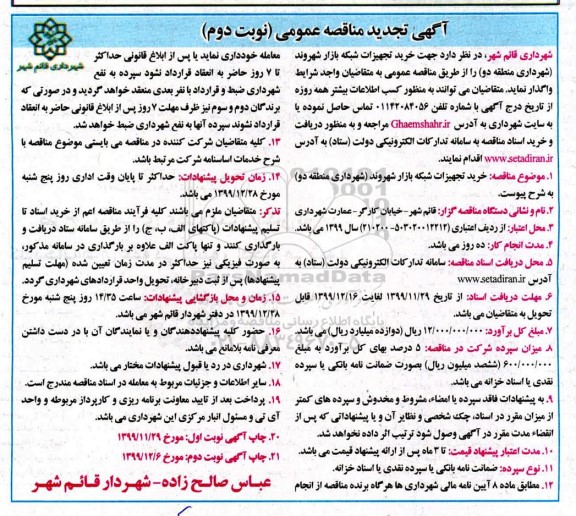 آگهی تجدید مناقصه عمومی (نوبت دوم)
شهرداری قائم شهر
شهرداری قائم شهر، در نظر دارد جهت خرید تجهیزات شبکه بازار شهروند
(شهرداری منطقه دو) را از طریق مناقصه عمومی به متقاضیان واجد شرایط
واگذار نماید. متقاضیان می توانند به منظور کسب اطلاعات بیشتر همه روزه
از تاریخ درج آگهی با شماره تلفن ۰۱۱۴۲۰۸۴۰۵۶ تماس حاصل نموده یا
به سایت شهرداری به آدرس Ghaemshahr.ir مراجعه و به منظور دریافت
و خرید اسناد مناقصه به سامانه تدارکات الکترونیکی دولت (ستاد) به آدرس
www.setadiran.ir اقدام نمایند.
۱. موضوع مناقصه: خرید تجهیزات شبکه بازار شهروند (شهرداری منطقه دو)
به شرح پیوست.
۲. نام و نشانی دستگاه مناقصه گزار: قائم شهر - خیابان کارگر - عمارت شهرداری
۳. محل اعتبار: از ردیف اعتباری (۵۰۳۰۲۰۰۱۲۲۱۲-۲۱۰۲۰۰) سال ۱۳۹۹ می باشد.
۴. مدت انجام کار: ده روز می باشد.
۵. محل دریافت اسناد مناقصه: سامانه تدارکات الکترونیکی دولت (ستاد) به
آدرس www.setadiran.ir
۶. مهلت دریافت اسناد: از تاریخ ۱۳۹۹/۱۱/۲۹ لغایت ۱۳۹۹/۱۲/۱۶ قابل
تحویل به متقاضیان می باشد.
۷. مبلغ کل برآورد: ۱۲/۰۰۰/۰۰۰/۰۰۰ ریال (دوازده میلیارد ریال) می باشد.
۸. میزان سپرده شرکت در مناقصه: ۵ درصد بهای کل برآورد به مبلغ
۶۰۰/۰۰۰/۰۰۰ (ششصد میلیون ریال) بصورت ضمانت نامه بانکی یا سپرده
نقدی یا اسناد خزانه می باشد.
۹. به پیشنهادات فاقد سپرده یا امضاء، مشروط و مخدوش و سپرده های کمتر
از میزان مقرر در اسناد، چک شخصی و نظایر آن و یا پیشنهاداتی که پس از
انقضاء مدت مقرر در آگهی وصول شود ترتیب اثر داده نخواهد شد.
۱۰. مدت اعتبار پیشنهاد قیمت: تا ۳ ماه پس از ارائه پیشنهاد قیمت می باشد.
۱۱. نوع سپرده: ضمانت نامه بانکی یا سپرده نقدی یا اسناد خزانه.
۱۲. مطابق ماده ۸ آیین نامه مالی شهرداری ها هرگاه برنده مناقصه از انجام
معامله خودداری نماید یا پس از ابلاغ قانونی حداکثر
تا ۷ روز حاضر به انعقاد قرارداد نشود سپرده به نفع
شهرداری ضبط و قرارداد با نفر بعدی منعقد خواهد گردید و در صورتی که
برندگان دوم و سوم نیز ظرف مهلت ۷ روز پس از ابلاغ قانونی حاضر به انعقاد
قرارداد نشوند سپرده آنها به نفع شهرداری ضبط خواهد شد.
۱۳. کلیه متقاضیان شرکت کننده در مناقصه می بایستی موضوع مناقصه با
شرح خدمات اساسنامه شرکت مرتبط باشد.
۱۴. زمان تحویل پیشنهادات: حداکثر تا پایان وقت اداری روز پنج شنبه
مورخ ۱۳۹۹/۱۲/۲۸ می باشد.
تذکر: متقاضیان ملزم می باشند کلیه فرآیند مناقصه اعم از خرید اسناد تا
تسلیم پیشنهادات (پاکتهای الف، ب، ج) را از طریق سامانه ستاد دریافت و
بارگذاری کنند و تنها پاکت الف علاوه بر بارگذاری در سامانه مذکور،
به صورت فیزیکی نیز حداکثر در مدت زمان تعیین شده (مهلت تسلیم
پیشنهادها) پس از ثبت دبیرخانه، تحویل واحد قراردادهای شهرداری گردد.
۱۵. زمان و محل بازگشایی پیشنهادات: ساعت ۱۴/۳۵ روز پنج شنبه مورخ
۱۳۹۹/۱۲/۲۸ در دفتر شهردار قائم شهر می باشد.
۱۶. حضور کلیه پیشنهاددهندگان و یا نمایندگان آن با در دست داشتن
معرفی نامه بلامانع می باشد.
۱۷. شهرداری در رد یا قبول پیشنهادات مختار می باشد.
۱۸. سایر اطلاعات و جزئیات مربوط به معامله در اسناد مناقصه مندرج است.
۱۹. پرداخت بعد از تایید معاونت برنامه ریزی و کارپرداز مربوطه و واحد
آی تی و مسئول انبار مرکزی این شهرداری می باشد.
۲۰. چاپ آگهی نوبت اول: مورخ ۱۳۹۹/۱۱/۲۹
۲۱. چاپ آگهی نوبت دوم: مورخ ۱۳۹۹/۱۲/۶
عباس صالح زاده - شهردار قائم شهر